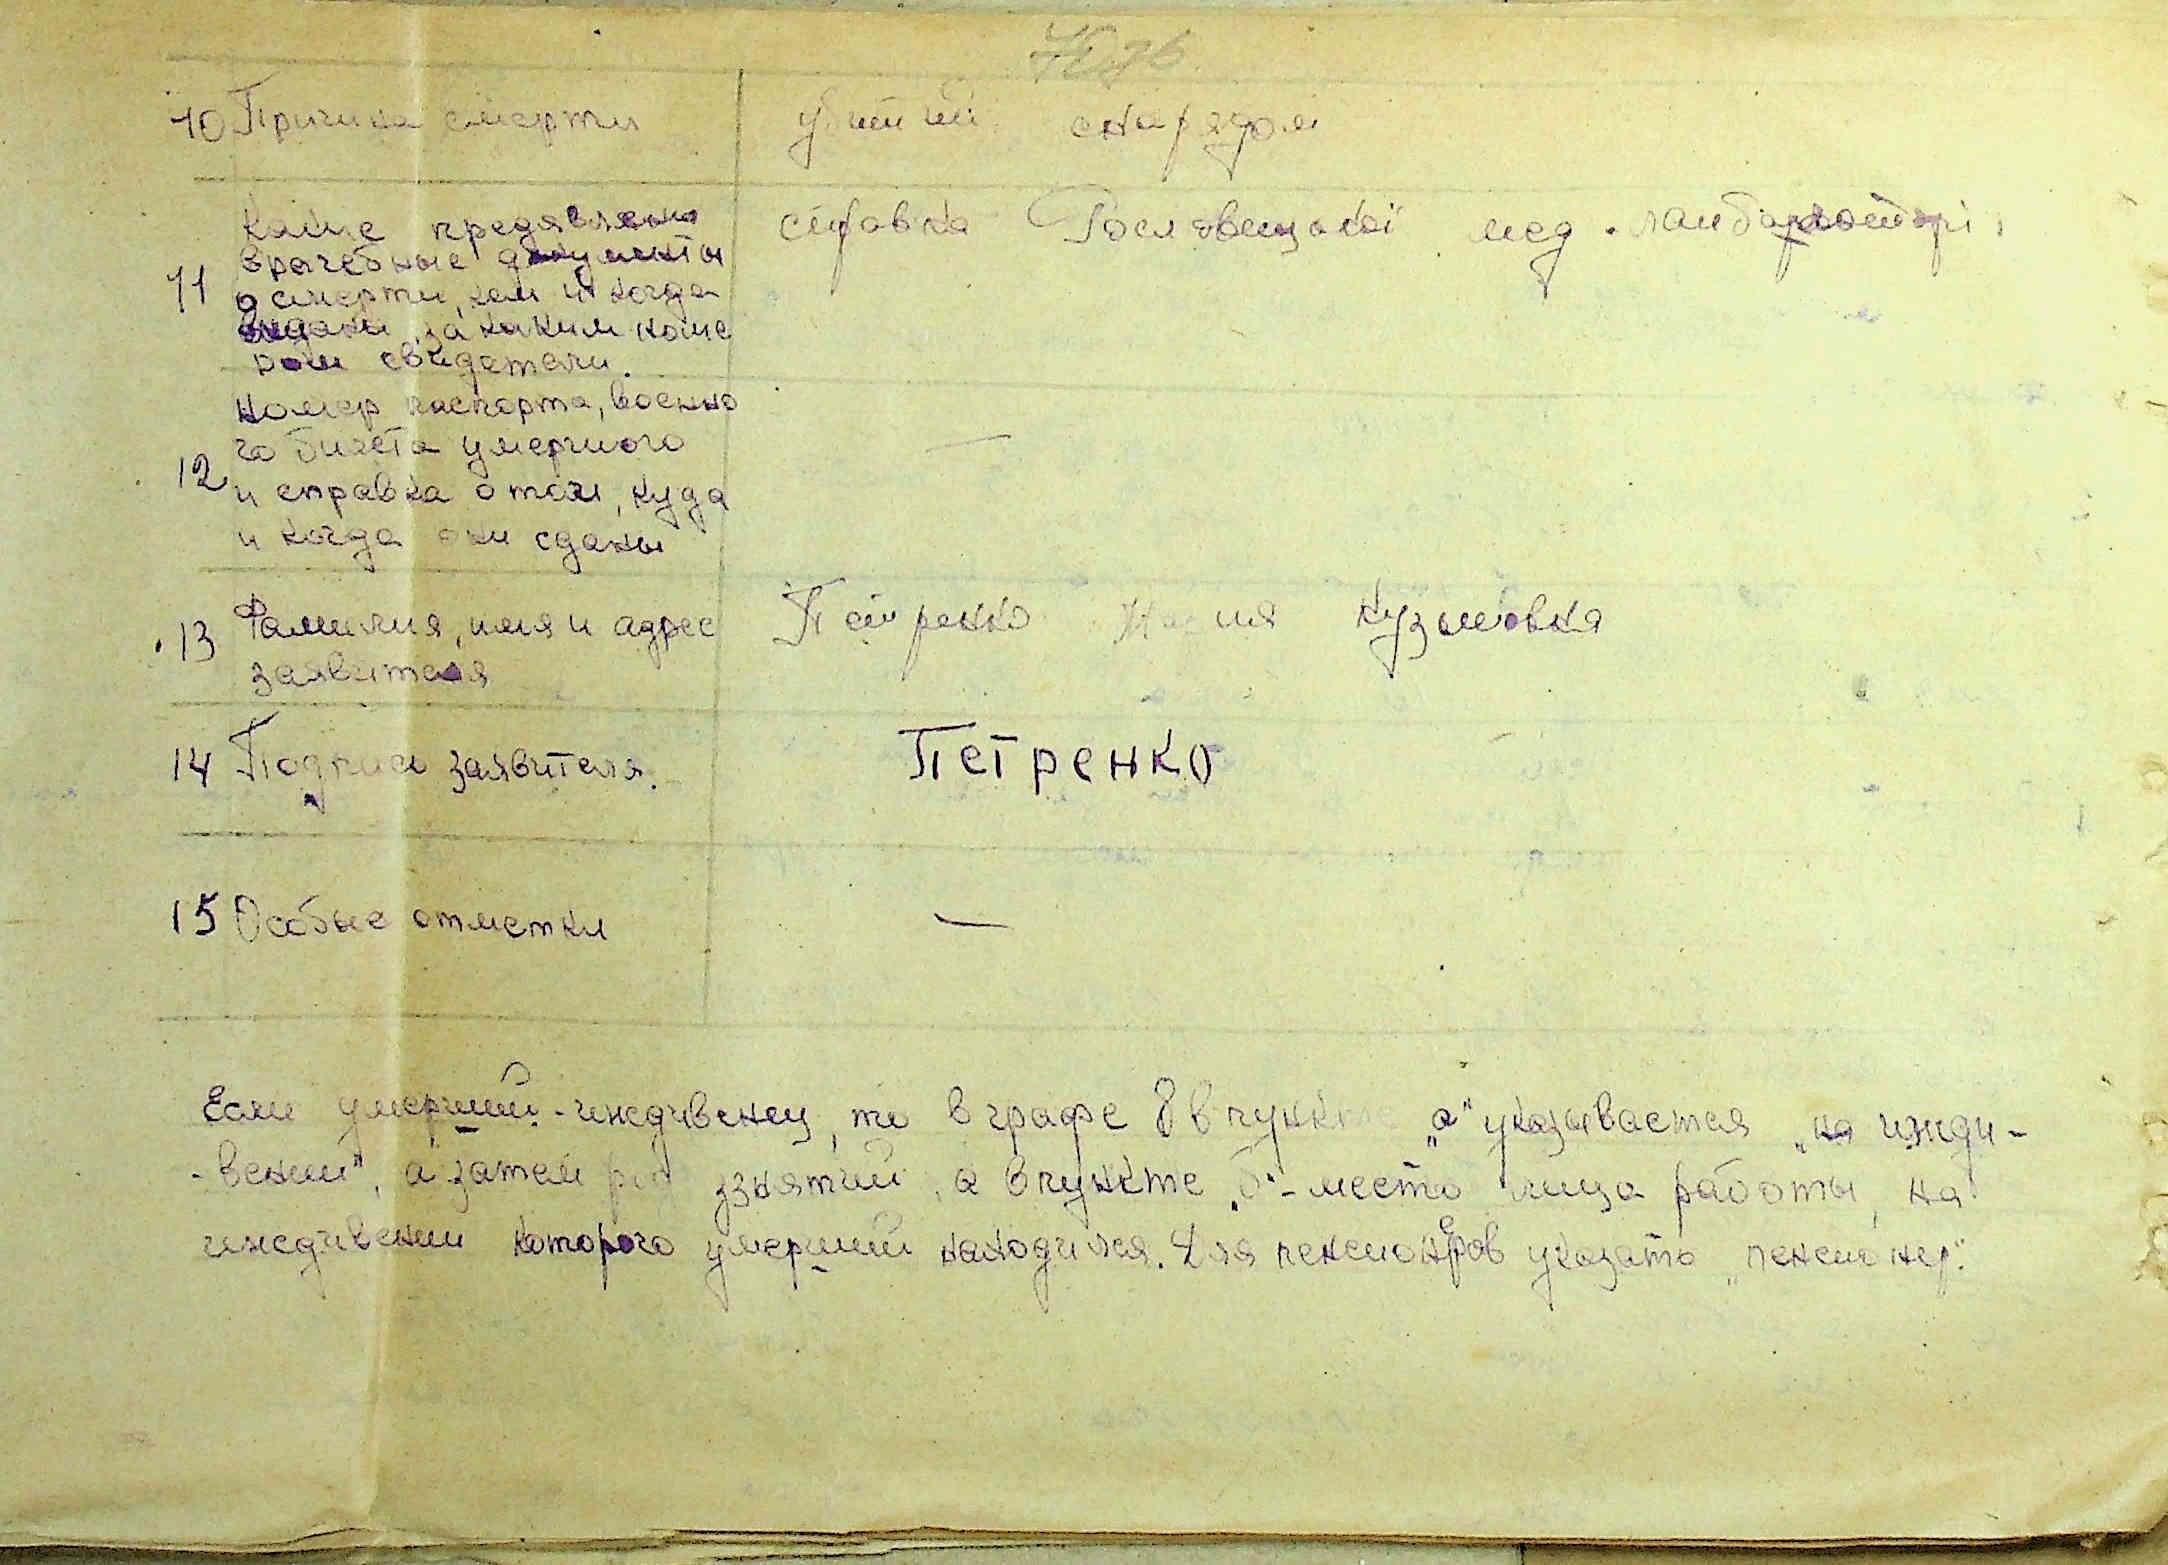 10 Причина смерти убитий снарядом
Какие предявлено справка мед.
врачебные документы
11 о смерти, кем и когда
выданы, за каким номе
ром свидетели.
Номер паспорта, военно
го билета умершого —
12 и справка о том, куда
и когда они сданы
13 Фамилия, имя и адрес Петренко Кузмовна
заявителя
14 Подпись заявителя. Петренко
15 Особые отметки —
Если умерший - иждивенец, то в графе 8 в пункте „а" указывается „на ижди-
-вении", а затем род занятий, а в пункте „б" - место лица работы, на
иждивении которого умерший находился. Для пенсионеров указать „пенсионер".